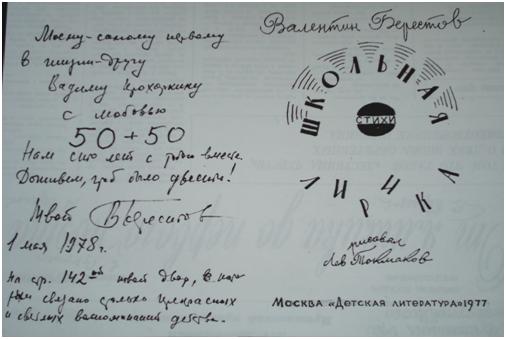 Моему самому первому
в жизни другу
Вадиму Прохоркину
с любовью
50 + 50
Нам сто лет с тобой вместе.
Доживем, чтоб было двести!
Твой В Берестов
1 мая 1978 г.
На стр. 142ой твой двор, с кото-
рым связано столько прекрасных
и светлых воспоминаний детства.
Валентин Берестов
ШКОЛЬНАЯ
СТИХИ
ЛИРИКА
рисовал
Лев Токмаков
МОСКВА «ДЕТСКАЯ ЛИТЕРАТУРА» 1977